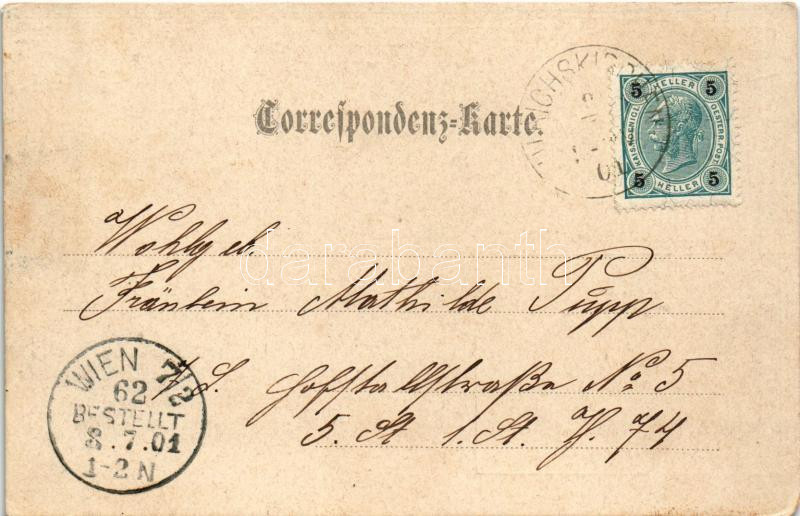 Correspondenz-Karte.
5 HELLER 5
KAIS. KOENIGL. OESTERR. POST
5 HELLER 5
01
darabanth
Wohlgeb.
Fräulein Mathilde Pupp
Hofstallstraße No 5
5. St 1. St. Th. 74
WIEN 7/2
62
BESTELLT
8.7.01
1-2N